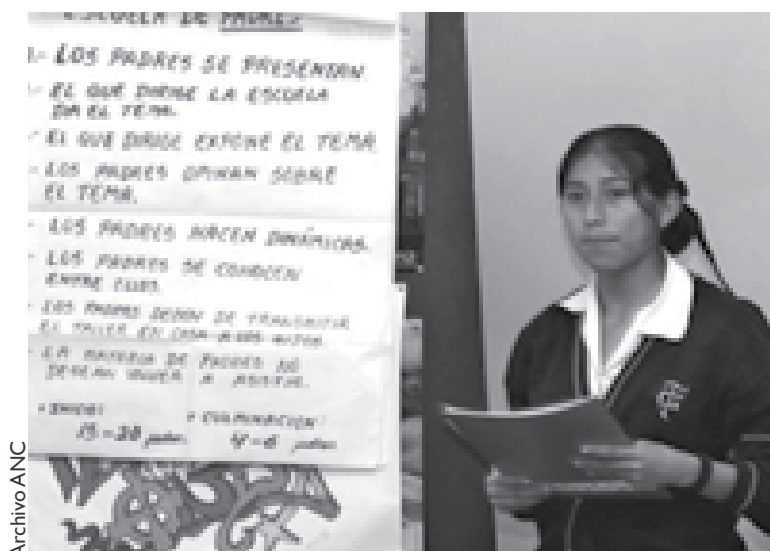 ESCUELA DE PADRES
- LOS PADRES SE PRESENTAN.
- EL QUE DIRIGE LA ESCUELA
DA EL TEMA.
- EL QUE DIRIGE EXPONE EL TEMA
- LOS PADRES OPINAN SOBRE
EL TEMA.
- LOS PADRES HACEN DINÁMICAS.
- LOS PADRES SE CONOCEN
ENTRE ELLOS.
- LOS PADRES DEJAN DE TRANSMITIR
EL TALLER EN CASA A SUS HIJOS.
- LA MAYORIA DE PADRES NO
DESEAN VOLVER A ASISTIR.
• INICIO: • CULMINACION:
15-20 padres 4-6 padres
Archivo ANC